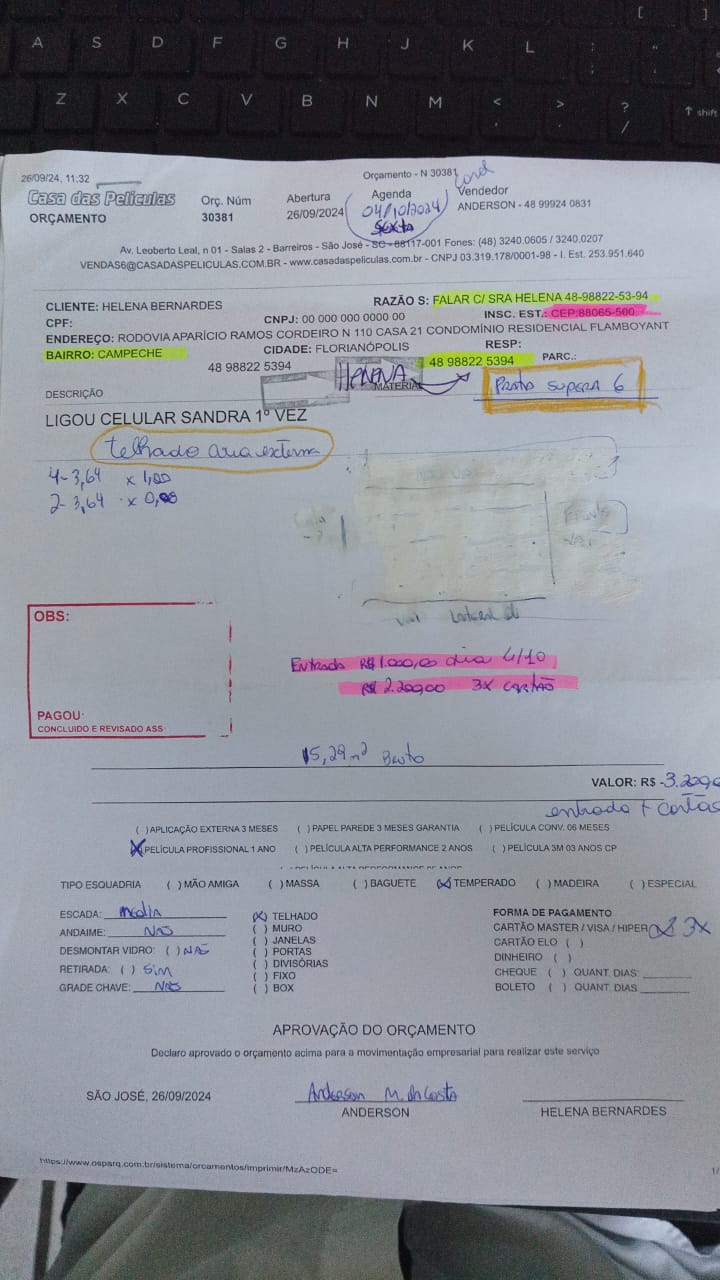 A S D F G H J K L
Z X C V B N M < > ? /
shift
26/09/24, 11:32
Orçamento - N 30381
Casa das Películas
ORÇAMENTO
Orç. Núm
30381
Abertura
26/09/2024
Agenda
04/10/2024
Sexta
Vendedor
ANDERSON - 48 99924 0831
Av. Leoberto Leal, n 01 - Salas 2 - Barreiros - São José - SC - 88117-001 Fones: (48) 3240.0605 / 3240.0207
VENDAS6@CASADASPELICULAS.COM.BR - www.casadaspeliculas.com.br - CNPJ 03.319.178/0001-98 - I. Est. 253.951.640
CLIENTE: HELENA BERNARDES RAZÃO S: FALAR C/ SRA HELENA 48-98822-53-94
CPF: CNPJ: 00 000 000 0000 00 INSC. EST.: CEP:88065-500
ENDEREÇO: RODOVIA APARÍCIO RAMOS CORDEIRO N 110 CASA 21 CONDOMÍNIO RESIDENCIAL FLAMBOYANT
BAIRRO: CAMPECHE CIDADE: FLORIANÓPOLIS RESP:
48 98822 5394 48 98822 5394 PARC.:
DESCRIÇÃO MATERIAL Prata SUPERA 6
LIGOU CELULAR SANDRA 1º VEZ
telhado area externa
4-3,64 x 1,00
2-3,64 x
OBS:
PAGOU:
CONCLUIDO E REVISADO ASS:
Entrada R$ 1.000,00 dia 4/10
R$ 2.200,00 3X CARTÃO
15,29 m² Bruto
VALOR: R$ -3.200,
entrada + cartão
( ) APLICAÇÃO EXTERNA 3 MESES ( ) PAPEL PAREDE 3 MESES GARANTIA ( ) PELÍCULA CONV. 06 MESES
(X) PELÍCULA PROFISSIONAL 1 ANO ( ) PELÍCULA ALTA PERFORMANCE 2 ANOS ( ) PELÍCULA 3M 03 ANOS CP
TIPO ESQUADRIA ( ) MÃO AMIGA ( ) MASSA ( ) BAGUETE (X) TEMPERADO ( ) MADEIRA ( ) ESPECIAL
ESCADA: media
ANDAIME: NÃO
DESMONTAR VIDRO: ( ) NÃO
RETIRADA: ( ) Sim
GRADE CHAVE: NÃO
(X) TELHADO
( ) MURO
( ) JANELAS
( ) PORTAS
( ) DIVISÓRIAS
( ) FIXO
( ) BOX
FORMA DE PAGAMENTO
CARTÃO MASTER / VISA / HIPER (X) 3X
CARTÃO ELO ( )
DINHEIRO ( )
CHEQUE ( ) QUANT. DIAS:
BOLETO ( ) QUANT. DIAS
APROVAÇÃO DO ORÇAMENTO
Declaro aprovado o orçamento acima para a movimentação empresarial para realizar este serviço
SÃO JOSÉ, 26/09/2024
Anderson M. da Costa
ANDERSON
HELENA BERNARDES
https://www.osparq.com.br/sistema/orcamentos/imprimir/MzAzODE=
1/